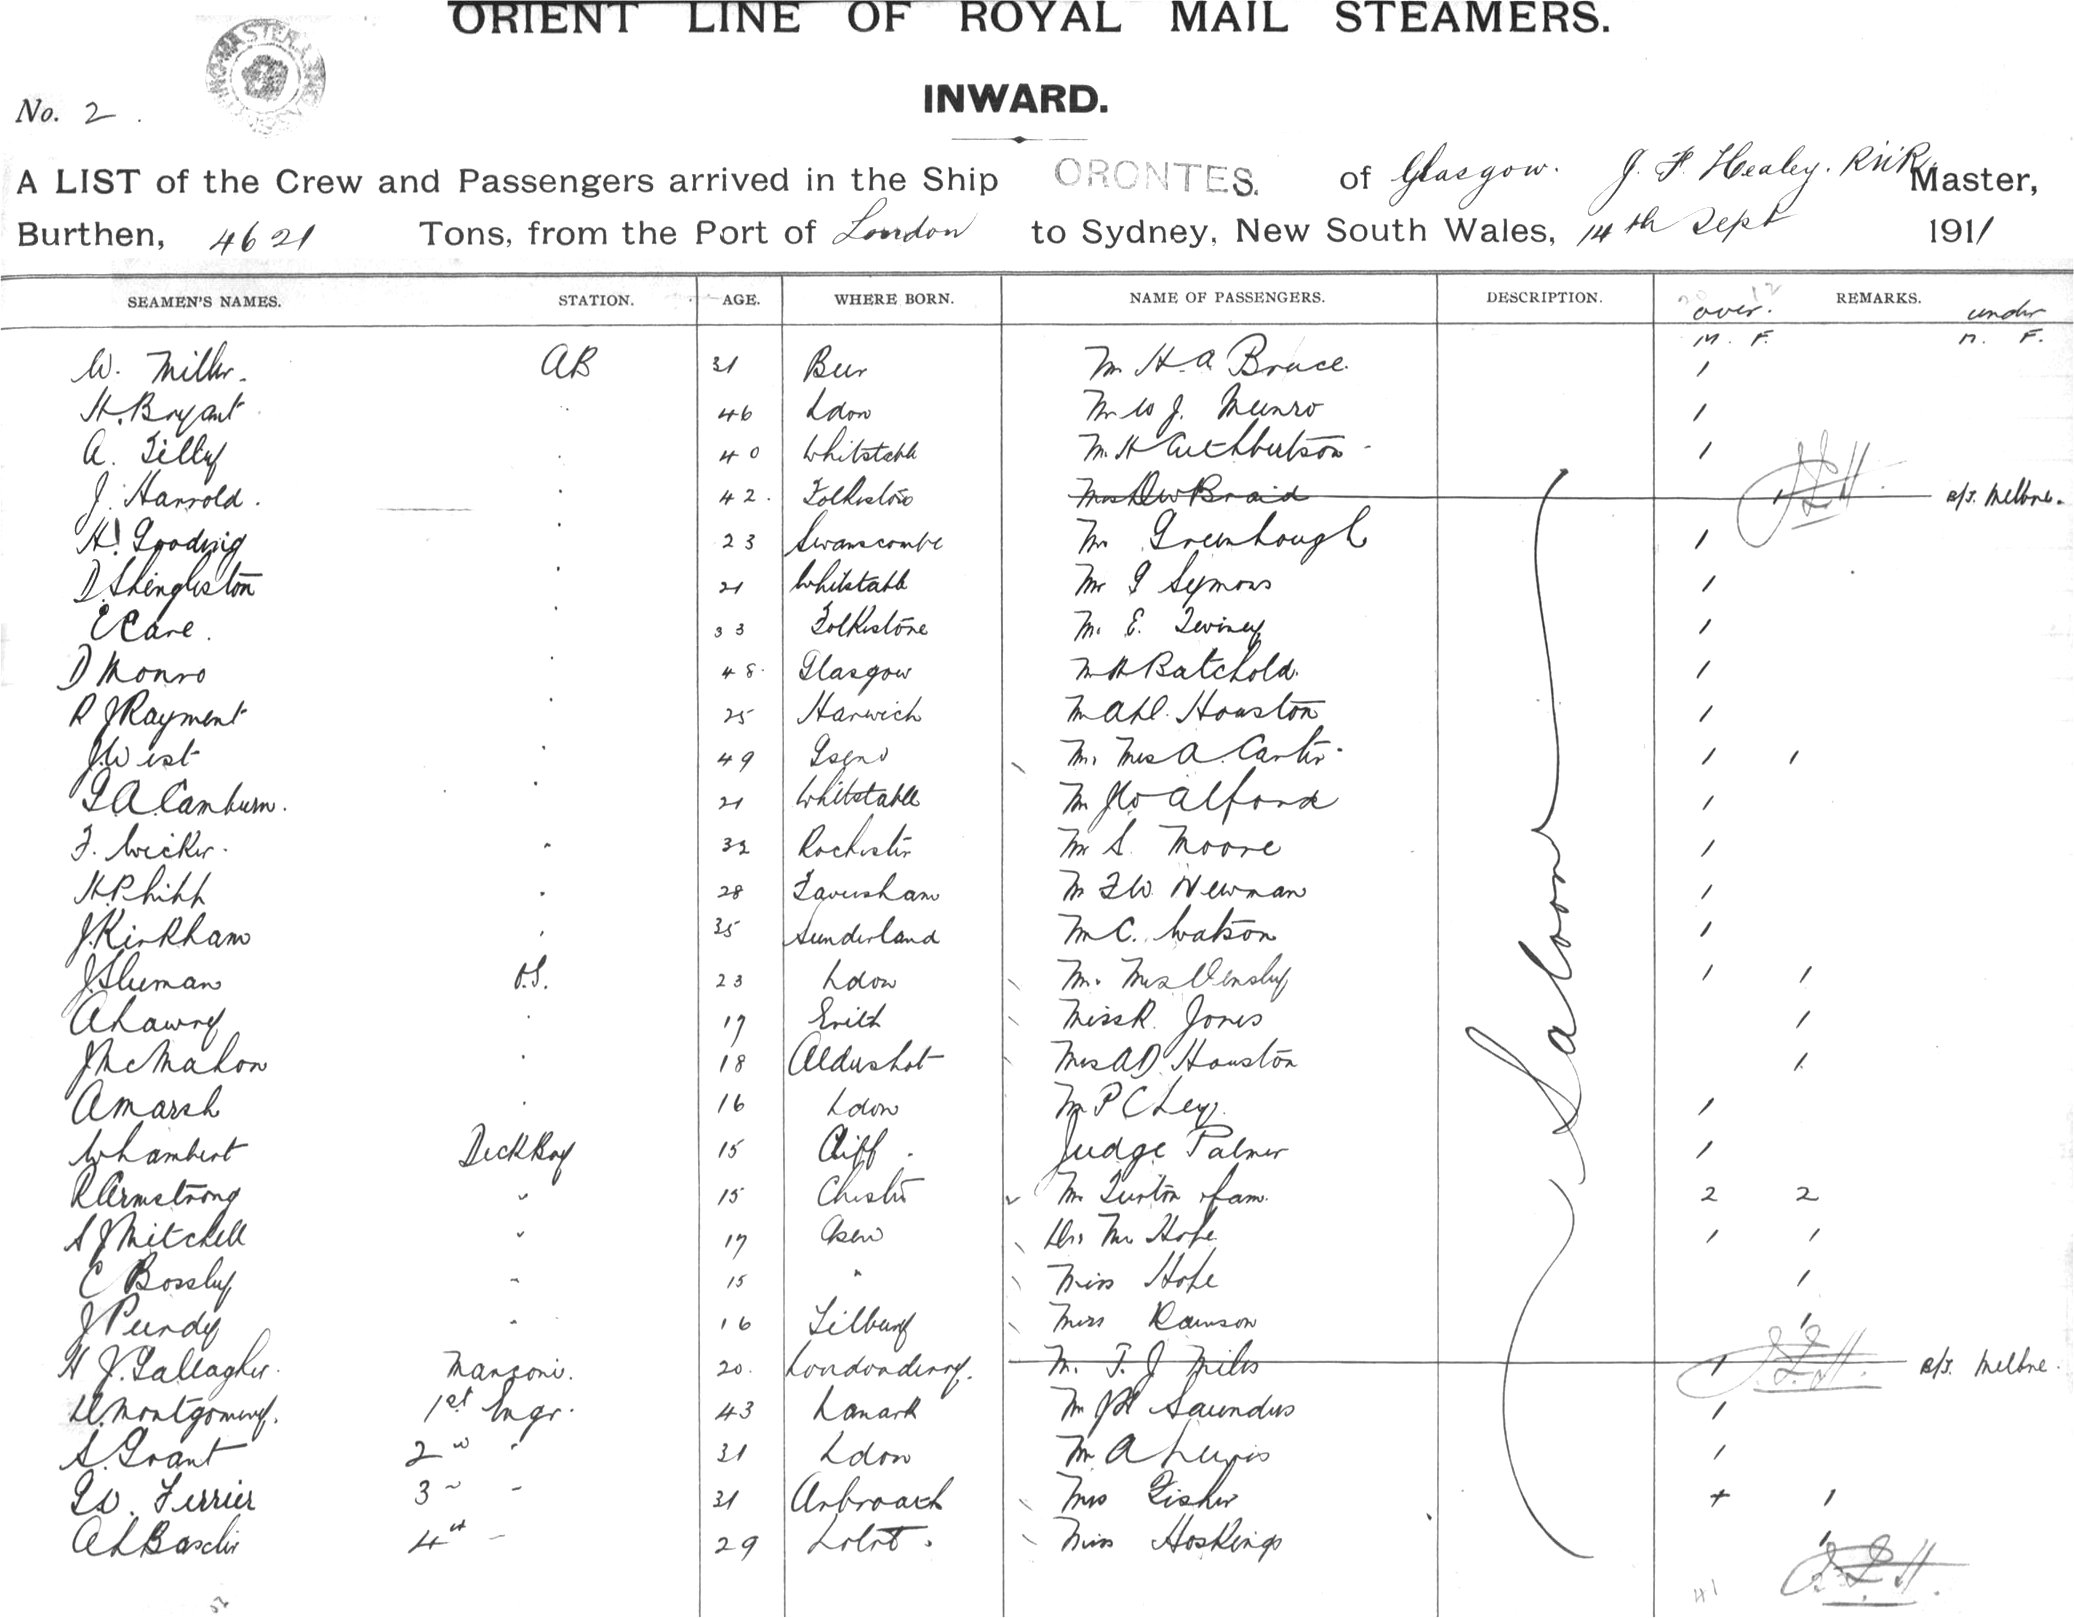 ORIENT LINE OF ROYAL MAIL STEAMERS.
INWARD.
No. 2.
A LIST of the Crew and Passengers arrived in the Ship ORONTES. of Glasgow. J. F. Healey. RNR Master,
Burthen, 4621 Tons, from the Port of London to Sydney, New South Wales, 14th Sept 1911
SEAMEN'S NAMES. STATION. AGE. WHERE BORN. NAME OF PASSENGERS. DESCRIPTION. over. 12 REMARKS. under
M. F. M. F.
W. Miller. AB 31 Mr H. A Bruce. 1
H. Bryant 46 Ldon Mr W J. Munro 1
A. Tilley 40 Whitstable Mr H Cuthbertson 1
J. Harrold. 42. Folkestone Braid 1 Melbne.
H. Gooding 23 Swanscombe Mr Greenhough 1
D. Shingleston 21 Whitstable Mr G Symons 1
E Care. 33 Folkestone Mr E. Twiney 1
D Monro 48. Glasgow Mr H Batchold. 1
R J Rayment 25 Harwich Mr A D. Houston 1
J. West 49 Mr Mrs A. Carter. 1 1
G. A. Camburn. 21 Whitstable Mr Alford 1
F. Wicker. 32 Rochester Mr S. Moore 1
H. Phibb 28 Faversham Mr F W. Newman 1
J. Kirkham 35 Sunderland Mr C. Watson 1
J. Sluman O.S. 23 Ldon Mr Mrs 1 1
A Lawry 17 Erith Miss R. Jones 1
J McMahon 18 Aldershot Mrs A D. Houston 1
A Marsh 16 Ldon Mr P C Ley. 1
W Lambert Deck Boy 15 Cliff. Judge Palmer 1
R Armstrong 15 Chester Mr Turton & fam. 2 2
S J Mitchell 17 Hope 1 1
C Bossley 15 " Miss Hope 1
J Purdy 16 Tilbury Miss Rawson 1
H J. Gallagher. Marconi. 20. Londonderry. Mr T. J Miles 1 Melbne.
Montgomery. 1st Engr. 43 Lanark Mr J H Saunders 1
S. Grant 2 " 31 Ldon Mr A Lewis 1
Ferrier 3 " 31 Arbroath Mrs Fisher 1
A L 4th " 29 Miss Hoskings 1
Saloon
41